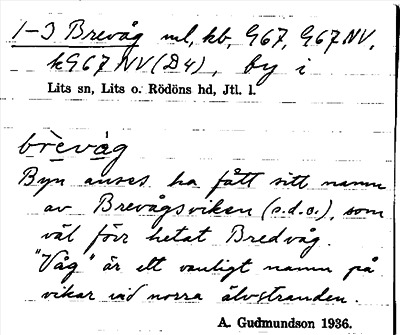 1-3 Brevåg ml, kb, G67, G67NV,
kG67NV(D4), by i
Lits sn, Lits o. Rödöns hd, Jtl. l.
brèvàg
Byn anses ha fått sitt namn
av Brevågsviken (s.d.o.), som
väl förr hetat Bredvåg.
"Våg" är ett vanligt namn på
vikar vid norra älvstranden.
A. Gudmundson 1936.